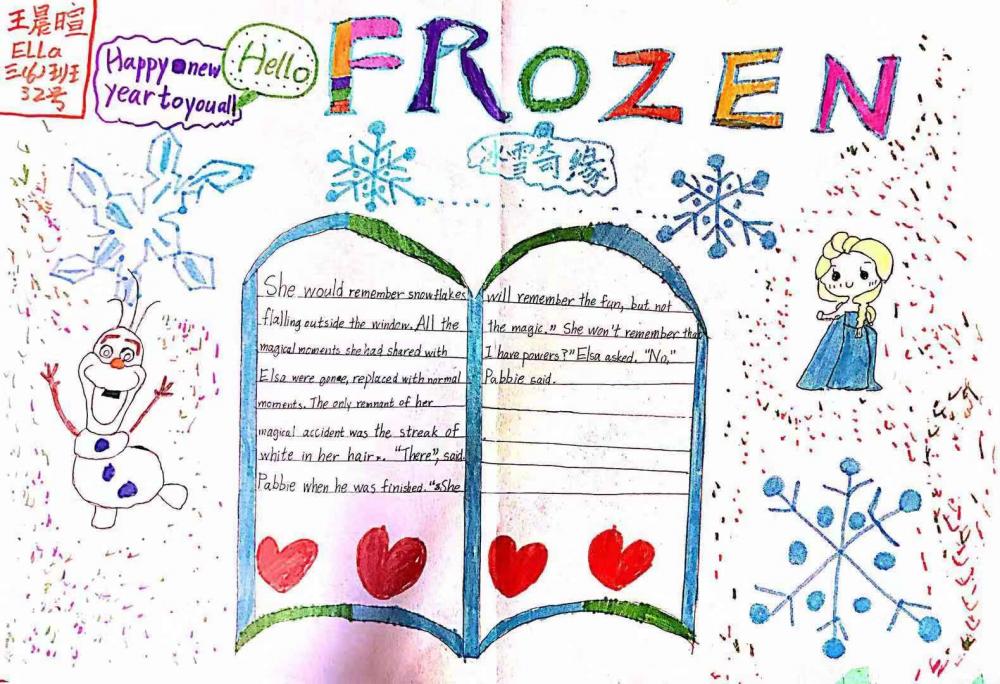 王晨暄
ELLa
三(6)班
32号
Happy new
year to you all
Hello
FROZEN
冰雪奇缘
She would remember snowflakes
flalling outside the window. All the
magical moments she had shared with
Elsa were gone, replaced with normal
moments. The only remnant of her
magical accident was the streak of
white in her hair. "There", said
Pabbie when he was finished. "She
will remember the fun, but not
the magic." She won't remember that
I have powers?" Elsa asked. "No,"
Pabbie said.